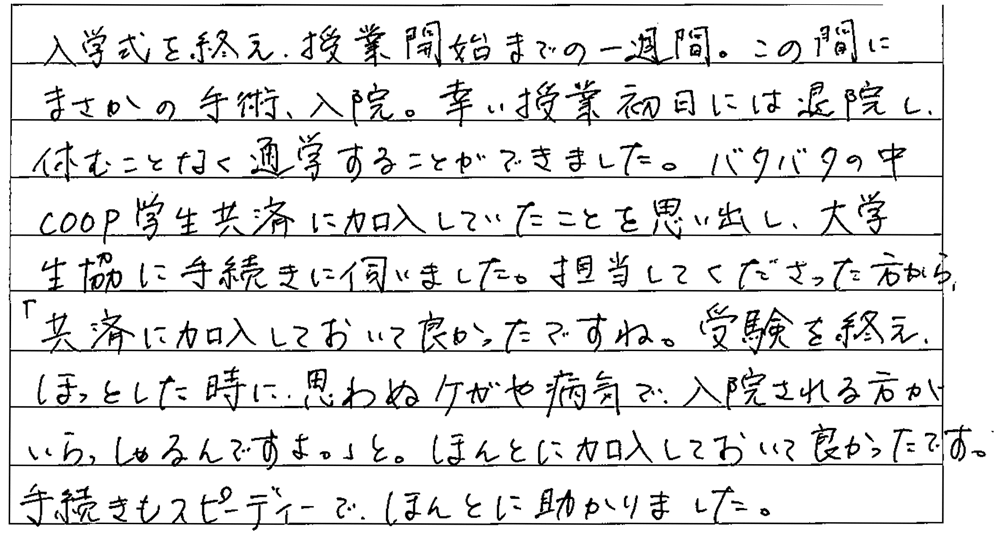 入学式を終え、授業開始までの一週間。この間に
まさかの手術、入院。幸い授業初日には退院し、
休むことなく通学することができました。バタバタの中
COOP学生共済に加入していたことを思い出し、大学
生協に手続きに伺いました。担当してくださった方から、
「共済に加入しておいて良かったですね。受験を終え、
ほっとした時に、思わぬケガや病気で、入院される方が
いらっしゃるんですよ。」と。ほんとに加入しておいて良かったです。
手続きもスピーディーで、ほんとに助かりました。